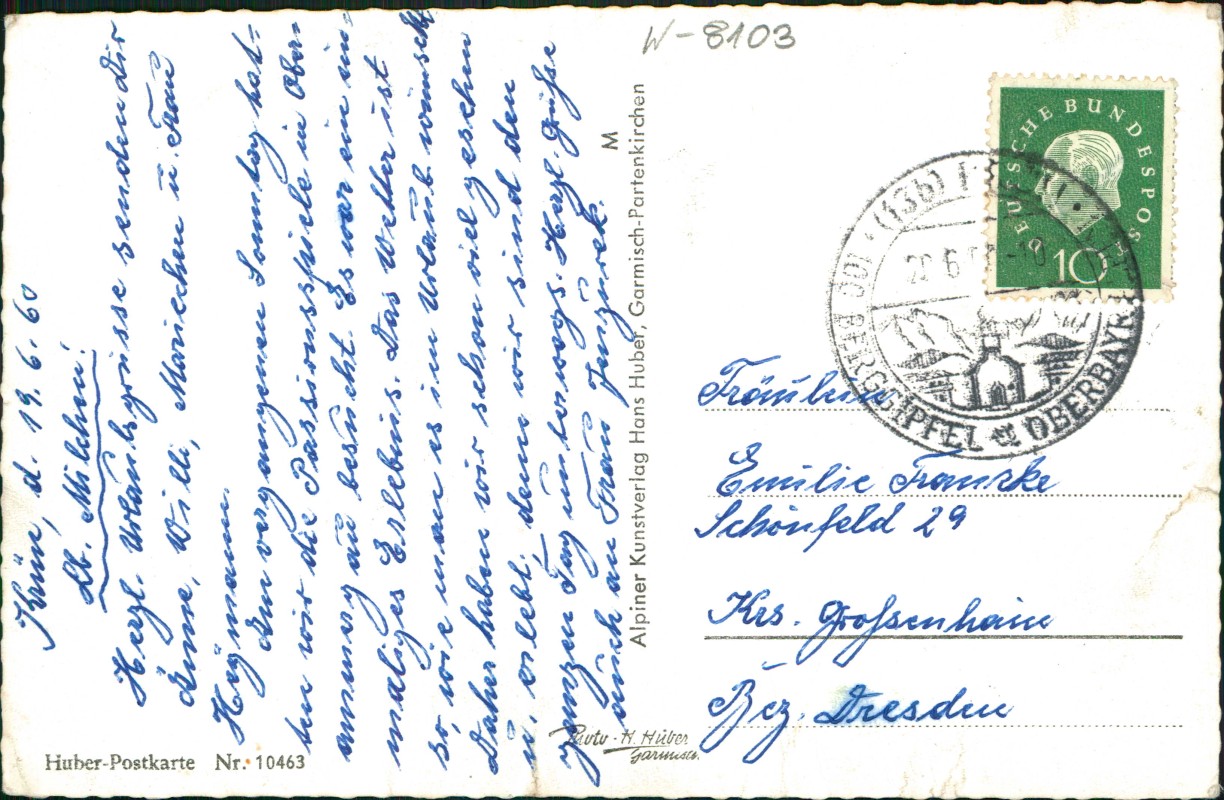 W-8103
Krün, d. 19.6.60
Lb. Milchen!
Herzl. Urlaubsgrüsse senden Dir
Änne, Willi, Mariechen u. Frau
Heymann.
Am vergangenen Sonntag hat-
ten wir die Passionsspiele in Ober-
ammergau besucht. Es war ein ein-
maliges Erlebnis. Das Wetter ist
so, wie man es im Urlaub wünscht
Daher haben wir schon viel gesehen
u. erlebt, denn wir sind den
ganzen Tag unterwegs. Herzl. Grüsse
auch an Frau
Alpiner Kunstverlag Hans Huber, Garmisch-Partenkirchen
M
Huber-Postkarte Nr. 10463
Photo - H. Huber
Garmisch.
DEUTSCHE BUNDESPOST
10
(13b)
BERGGIPFEL
OBERBAYR
Fräulein
Emilie Franzke
Schönfeld 29
Krs. Großenhain
Bez. Dresden